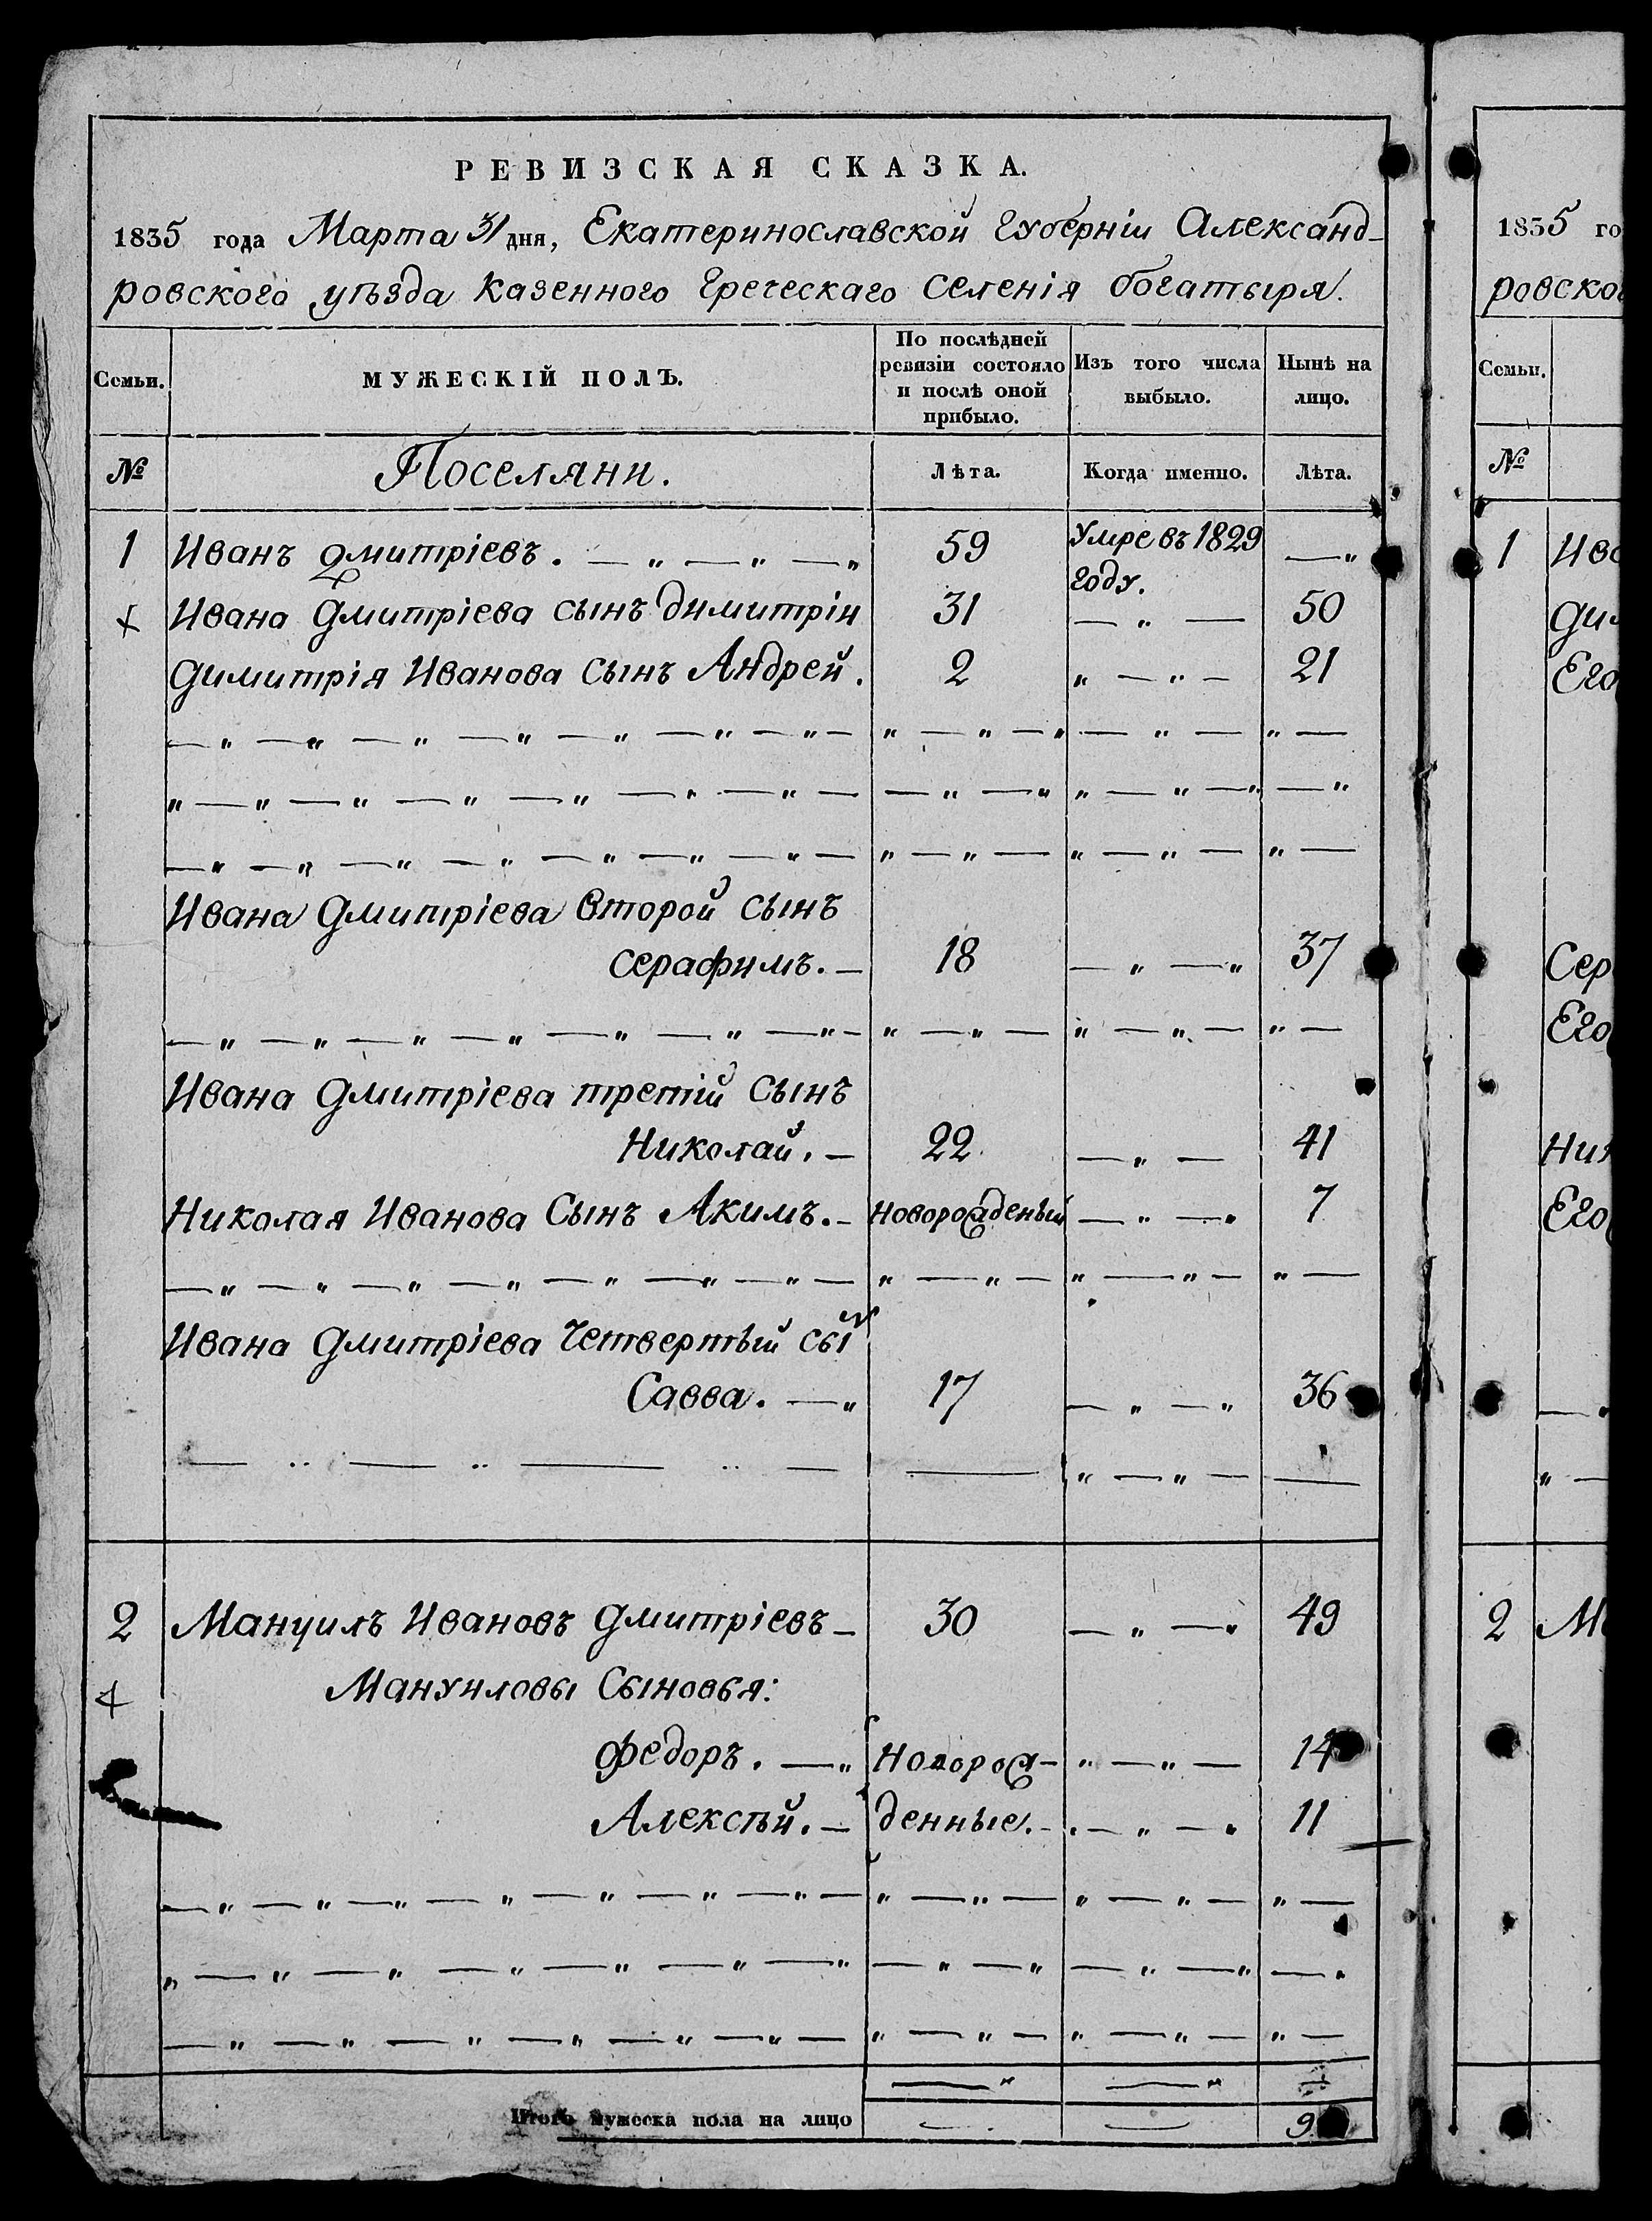 РЕВИЗСКАЯ СКАЗКА.
1835 года Марта 31 дня, Екатеринославской Губерніи Александ-
ровского уѣзда казенного Греческаго Селенія Богатыря.
Семьи. МУЖЕСКІЙ ПОЛЪ. По послѣдней ревизіи состояло и послѣ оной прибыло. Изъ того числа выбыло. Нынѣ на лицо.
№ Поселяни. Лѣта. Когда именно. Лѣта.
1 Иванъ Дмитріевъ. — „ — „ — „ 59 Умре въ 1829 году. — „
Ивана Дмитріева сынъ Димитрій 31 — „ — 50
Димитрія Иванова сынъ Андрей. 2 „ — „ — 21
Ивана Дмитріева второй сынъ
Серафимъ. — 18 — „ — „ 37
Ивана Дмитріева третій сынъ
Николай. — 22. — „ — 41
Николая Иванова Сынъ Акимъ. — новорожденый — „ — „ 7
Ивана Дмитріева Четвертый сын
Савва. — „ 17 — „ — „ 36
2 Мануилъ Ивановъ Дмитріевъ — 30 — „ — „ 49
Мануиловы Сыновья:
Федоръ. — „ Новорож- „ — „ — 14
Алексѣй. — денные. — „ — „ — „ 11
Итого мужеска пола на лицо 9
1835 го
ровско
Семьи.
№
1 Ива
Дим
Его
Сер
Его
Ник
Его
2 Ма